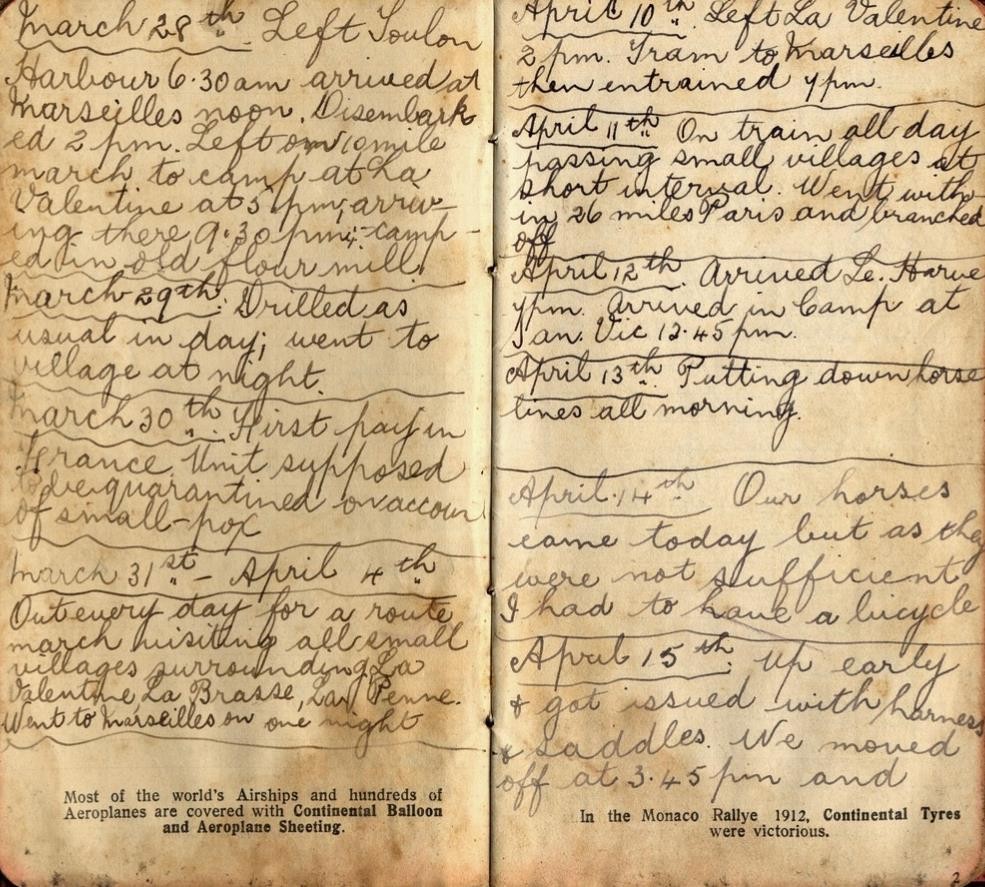 March 28th. Left Toulon
Harbour 6.30am arrived at
Marseilles noon. Disembark
ed 2 pm. Left on 10 mile
march to camp at La
Valentine at 5 pm; arriv-
ing there 9.30 pm; camp-
ed in old flour mill.
March 29th: Drilled as
usual in day; went to
village at night.
March 30th. First pay in
France. Unit supposed
to be quarantined on accoun
of small-pox
March 31st - April 4th
Out every day for a route
march visiting all small
villages surrounding La
Valentine, La Brasse, La Penne.
Went to Marseilles on one night
Most of the world's Airships and hundreds of
Aeroplanes are covered with Continental Balloon
and Aeroplane Sheeting.
April 10th. Left La Valentine
2 pm. Tram to Marseilles
then entrained 7pm.
April 11th On train all day
passing small villages at
short interval. Went with-
in 26 miles Paris and branched
off
April 12th. Arrived Le. Harve
7pm. Arrived in Camp at
San. Vic 12.45pm.
April 13th Putting down horse
lines all morning.
April 14th Our horses
came today but as they
were not sufficient
I had to have a bicycle
April 15th: Up early
& got issued with harness
& saddles. We moved
off at 3.45 pm and
In the Monaco Rallye 1912, Continental Tyres
were victorious.
2